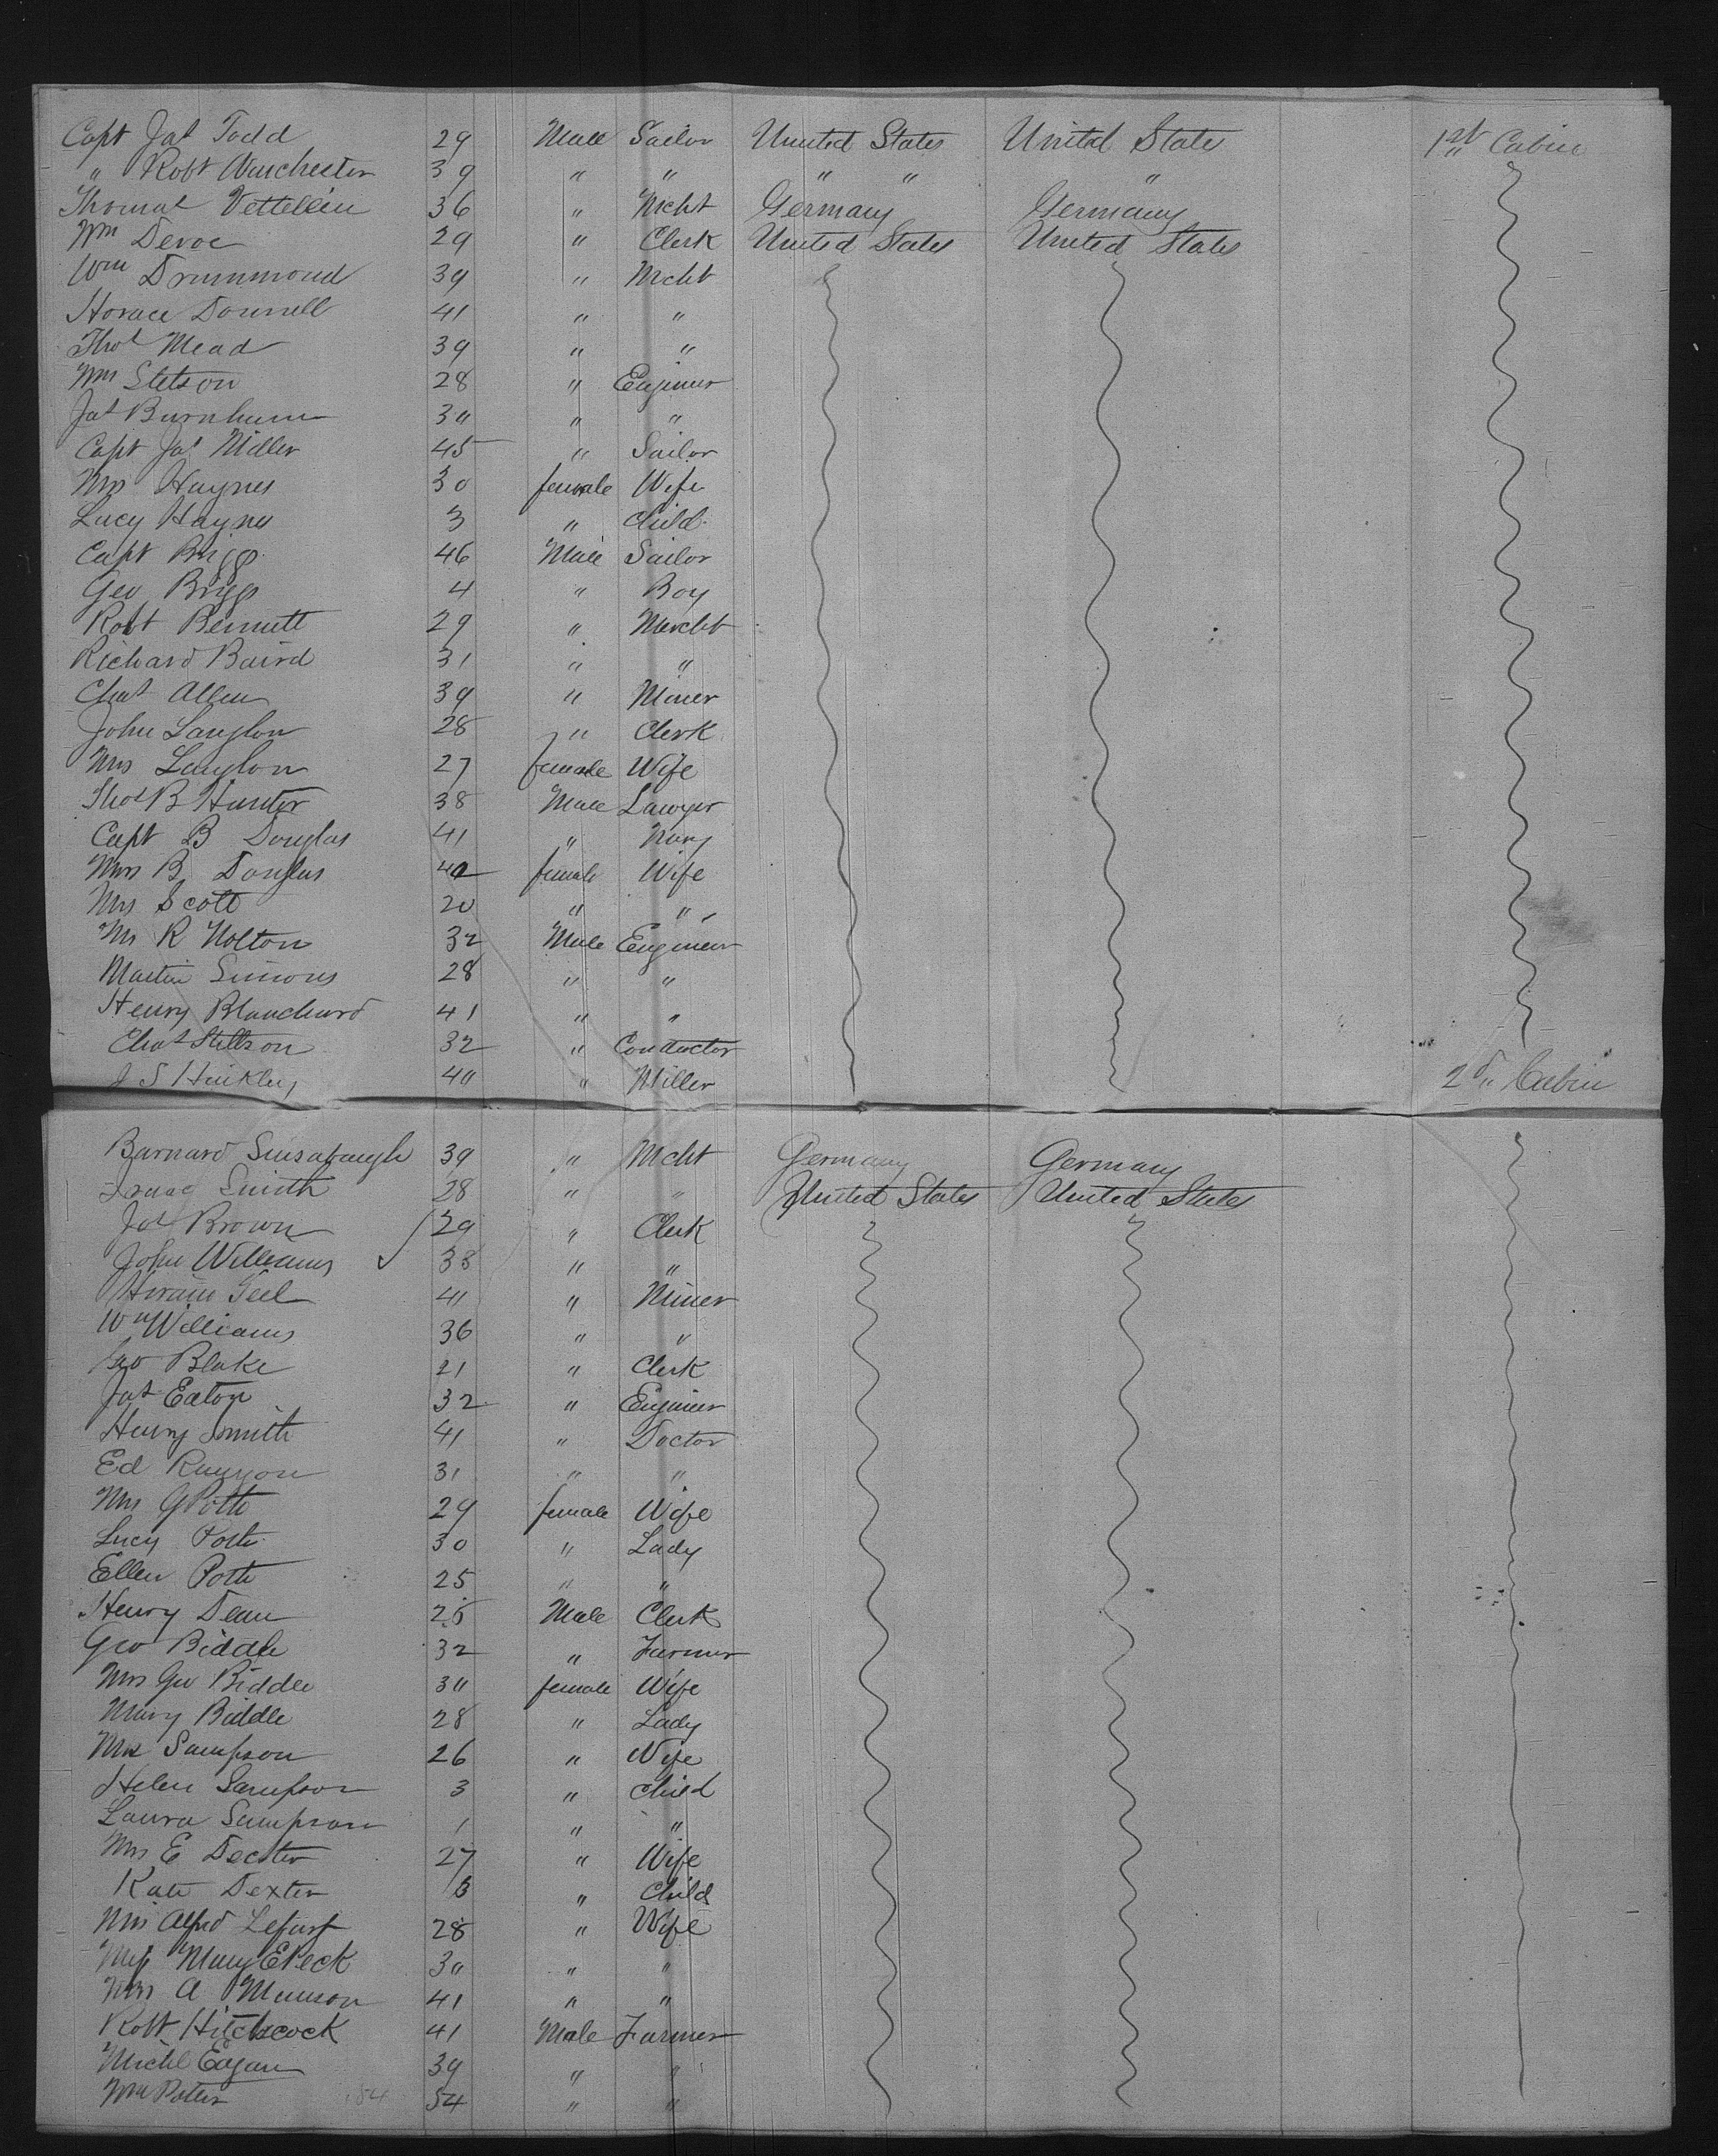 Capt Jas Todd 29 Male Sailor United States United States 1st Cabin
" Robt Winchester 39 " " " " "
Thomas Vettellin 36 " Mcht Germany Germany
Wm Devoe 29 " Clerk United States United States
Wm Drummond 39 " Mcht
Horace Donnell 41 " "
Thos Mead 39 " "
Wm Stetson 28 " Engineer
Jas Burnham 30 " "
Capt Jas Miller 45 " Sailor
Mrs Haynes 30 female Wife
Lucy Haynes 3 " Child
Capt Briggs 46 Male Sailor
Geo Briggs 4 " Boy
Robt Bennett 29 " Mercht
Richard Baird 31 " "
Chas Allen 39 " Miner
John Langlon 28 " Clerk
Mrs Langlon 27 female Wife
Thos B Hunter 38 Male Lawyer
Capt B Douglas 41 " Navy
Mrs B Douglas 42 female Wife
Mrs Scott 20 " "
Mr R Holton 32 Male Engineer
Martin Simons 28 " "
Henry Blanchard 41 " "
Chas Stillson 32 " Conductor
J S Hinkley 40 " Miller 2d Cabin
Barnard Sinsabaugh 39 " Mcht Germany Germany
Isaac Smith 28 " " United States United States
Jas Brown 29 " Clerk
John Williams 38 " "
Hiram Teel 41 " Miner
Wm Williams 36 " "
Geo Blake 21 " Clerk
Jas Eaton 32 " Engineer
Henry Smith 41 " Doctor
Ed Runyon 31 " "
Mrs G Potts 29 female Wife
Lucy Potts 30 " Lady
Ellen Potts 25 " "
Henry Dean 25 Male Clerk
Geo Biddle 32 " Farmer
Mrs Geo Biddle 30 female Wife
Mary Biddle 28 " Lady
Mrs Sampson 26 " Wife
Helen Sampson 3 " Child
Laura Sampson 1 " "
Mrs E Dexter 27 " Wife
Kate Dexter 3 " Child
Mrs Alfred 28 " Wife
Mrs Mary E Peck 30 " "
Mrs A Munson 41 " "
Robt Hitchcock 41 Male Farmer
Michl Eagan 39 " "
Wm Potter 54 " "